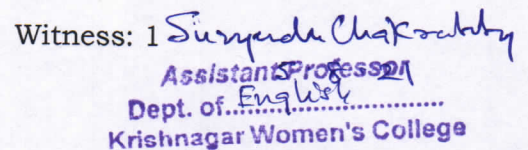 Witness: 1 Suryendu Chakraborty
Assistant Professor
Dept. of English
Krishnagar Women's College